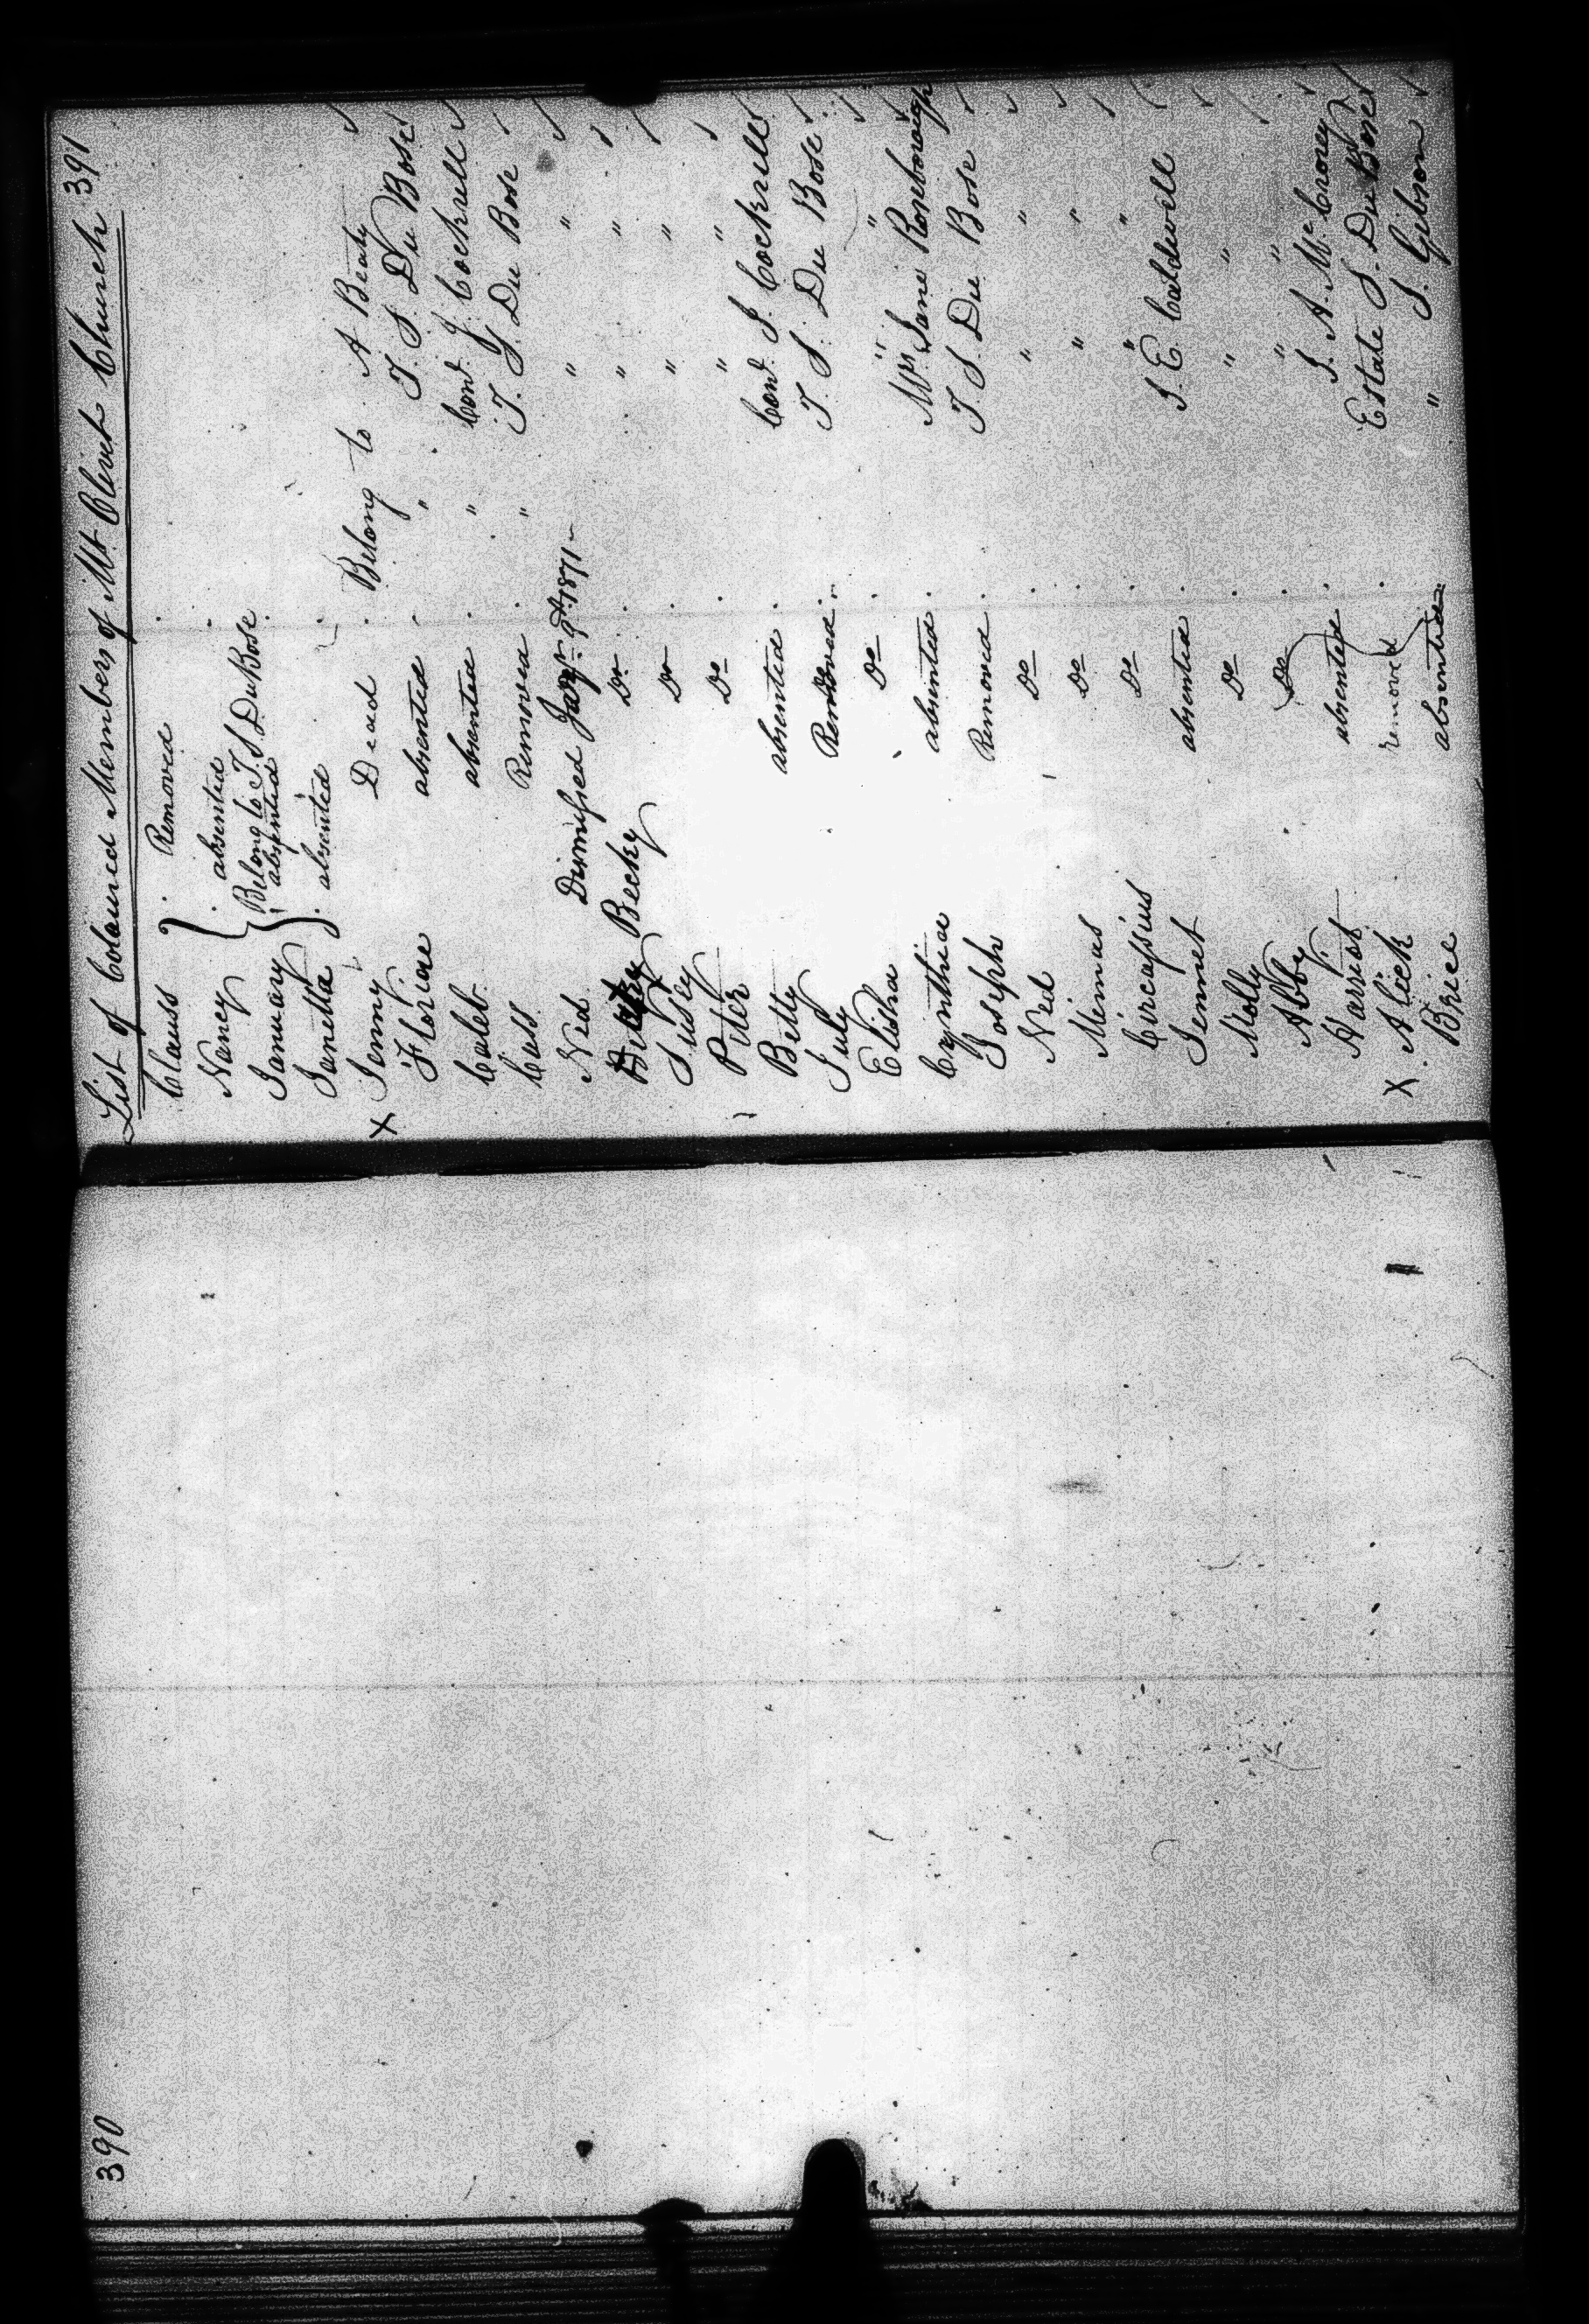 390
List of Coloured Members of Mt. Olivet Church 391
Clauss } . Removed .
Nancy { . absented .
January { Belong to T. S. DuBose . absented
Janetta } . absented .
x Jenny Dead . Belong to A Beaty
Florida absented . " T. S. Du Bose
Caleb absented . " Cond. J. Cockrell
Cass Removed . " T. S. Du Bose
Ned Dismissed Jany 9th 1871 " "
Becky Do . " "
Susey Do . " "
Peter Do . " "
Betty absented . Cond. J. Cockrell
July Removed . T. S. Du Bose
Elisha Do . " "
Cynthia absented . Mrs Jane Roseborough
Joseph Removed . T. S. Du Bose
Ned Do . " "
Mimas Do . " "
Circassius Do . " "
Jennet absented . J. E. Caldwell
Molly Do . " "
Abby Do . " "
Harriet absented . J. A. McCrorey
x Alick removed . Estate J. Du Bose
Brice absented . " J. Gibson